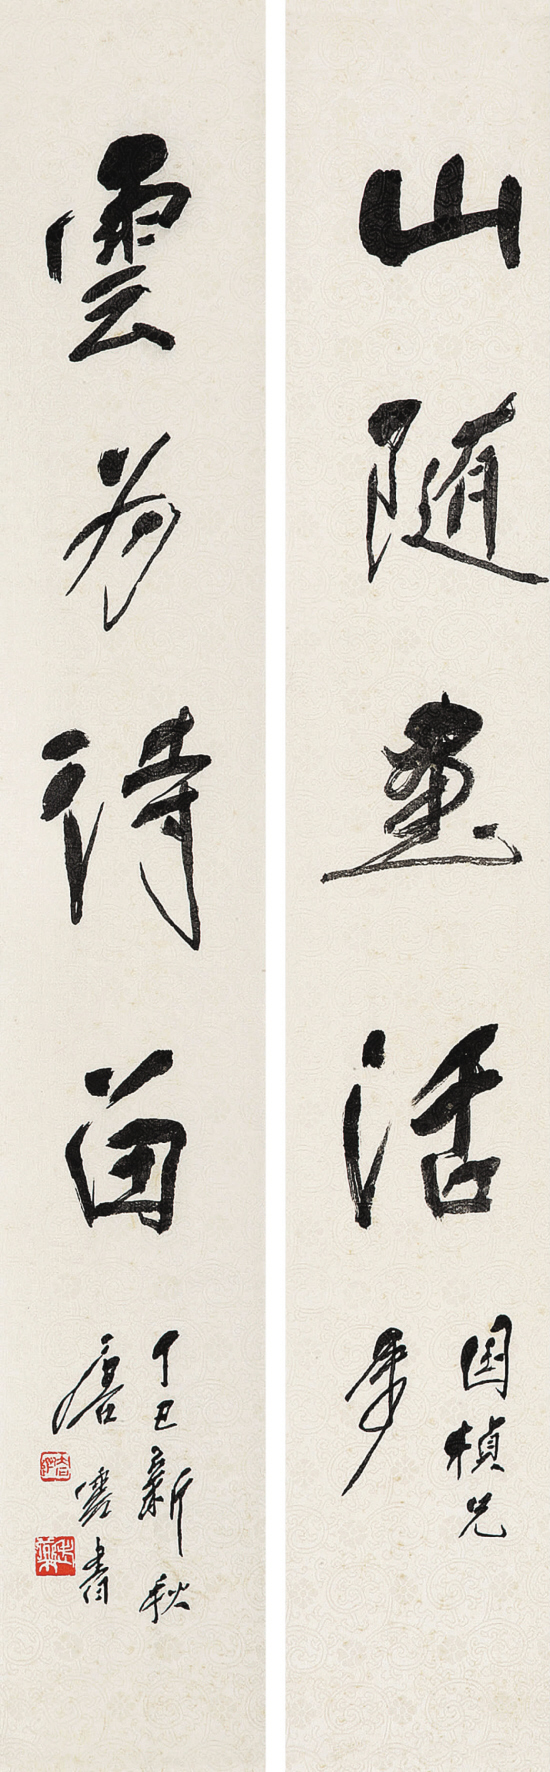 山随畫活
国楨兄
雲为詩留
丁丑新秋
唐雲書